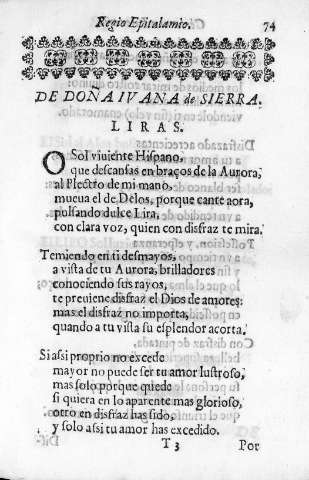 Regio Epitalamio. 74
DE DOÑA IVANA de SIERRA.
LIRAS.
O Sol viuiente Hispano,
que descansas en braços de la Aurora,
al Plectro de mi mano,
mueua el de Delos, porque cante aora,
pulsando dulce Lira,
con clara voz, quien con disfraz te mira.
Temiendo en ti desmayos,
a vista de tu Aurora, brilladores
conociendo sus rayos,
te preuiene disfraz el Dios de amores:
mas el disfraz no importa,
quando a tu vista su esplendor acorta.
Si assi proprio no excede
mayor no puede ser tu amor lustroso,
mas solo porque quede
si quiera en lo aparente mas glorioso,
otro en disfraz has sido,
y solo assi tu amor has excedido.
T 3 Por